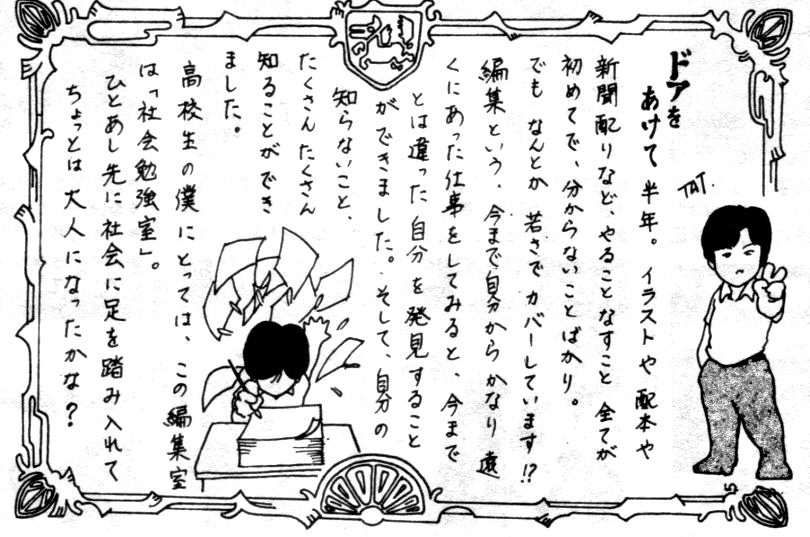 ドアを
あけて半年。イラストや配本や
新聞配りなど、やることなすこと全てが
初めてで、分からないことばかり。
でもなんとか若さでカバーしています!?
編集という、今まで自分からかなり遠
くにあった仕事をしてみると、今まで
とは違った自分を発見すること
ができました。そして、自分の
知らないこと、
たくさんたくさん
知ることができ
ました。
高校生の僕にとっては、この編集室
は「社会勉強室」。
ひとあし先に社会に足を踏み入れて
ちょっとは大人になったかな?
TAT.
5